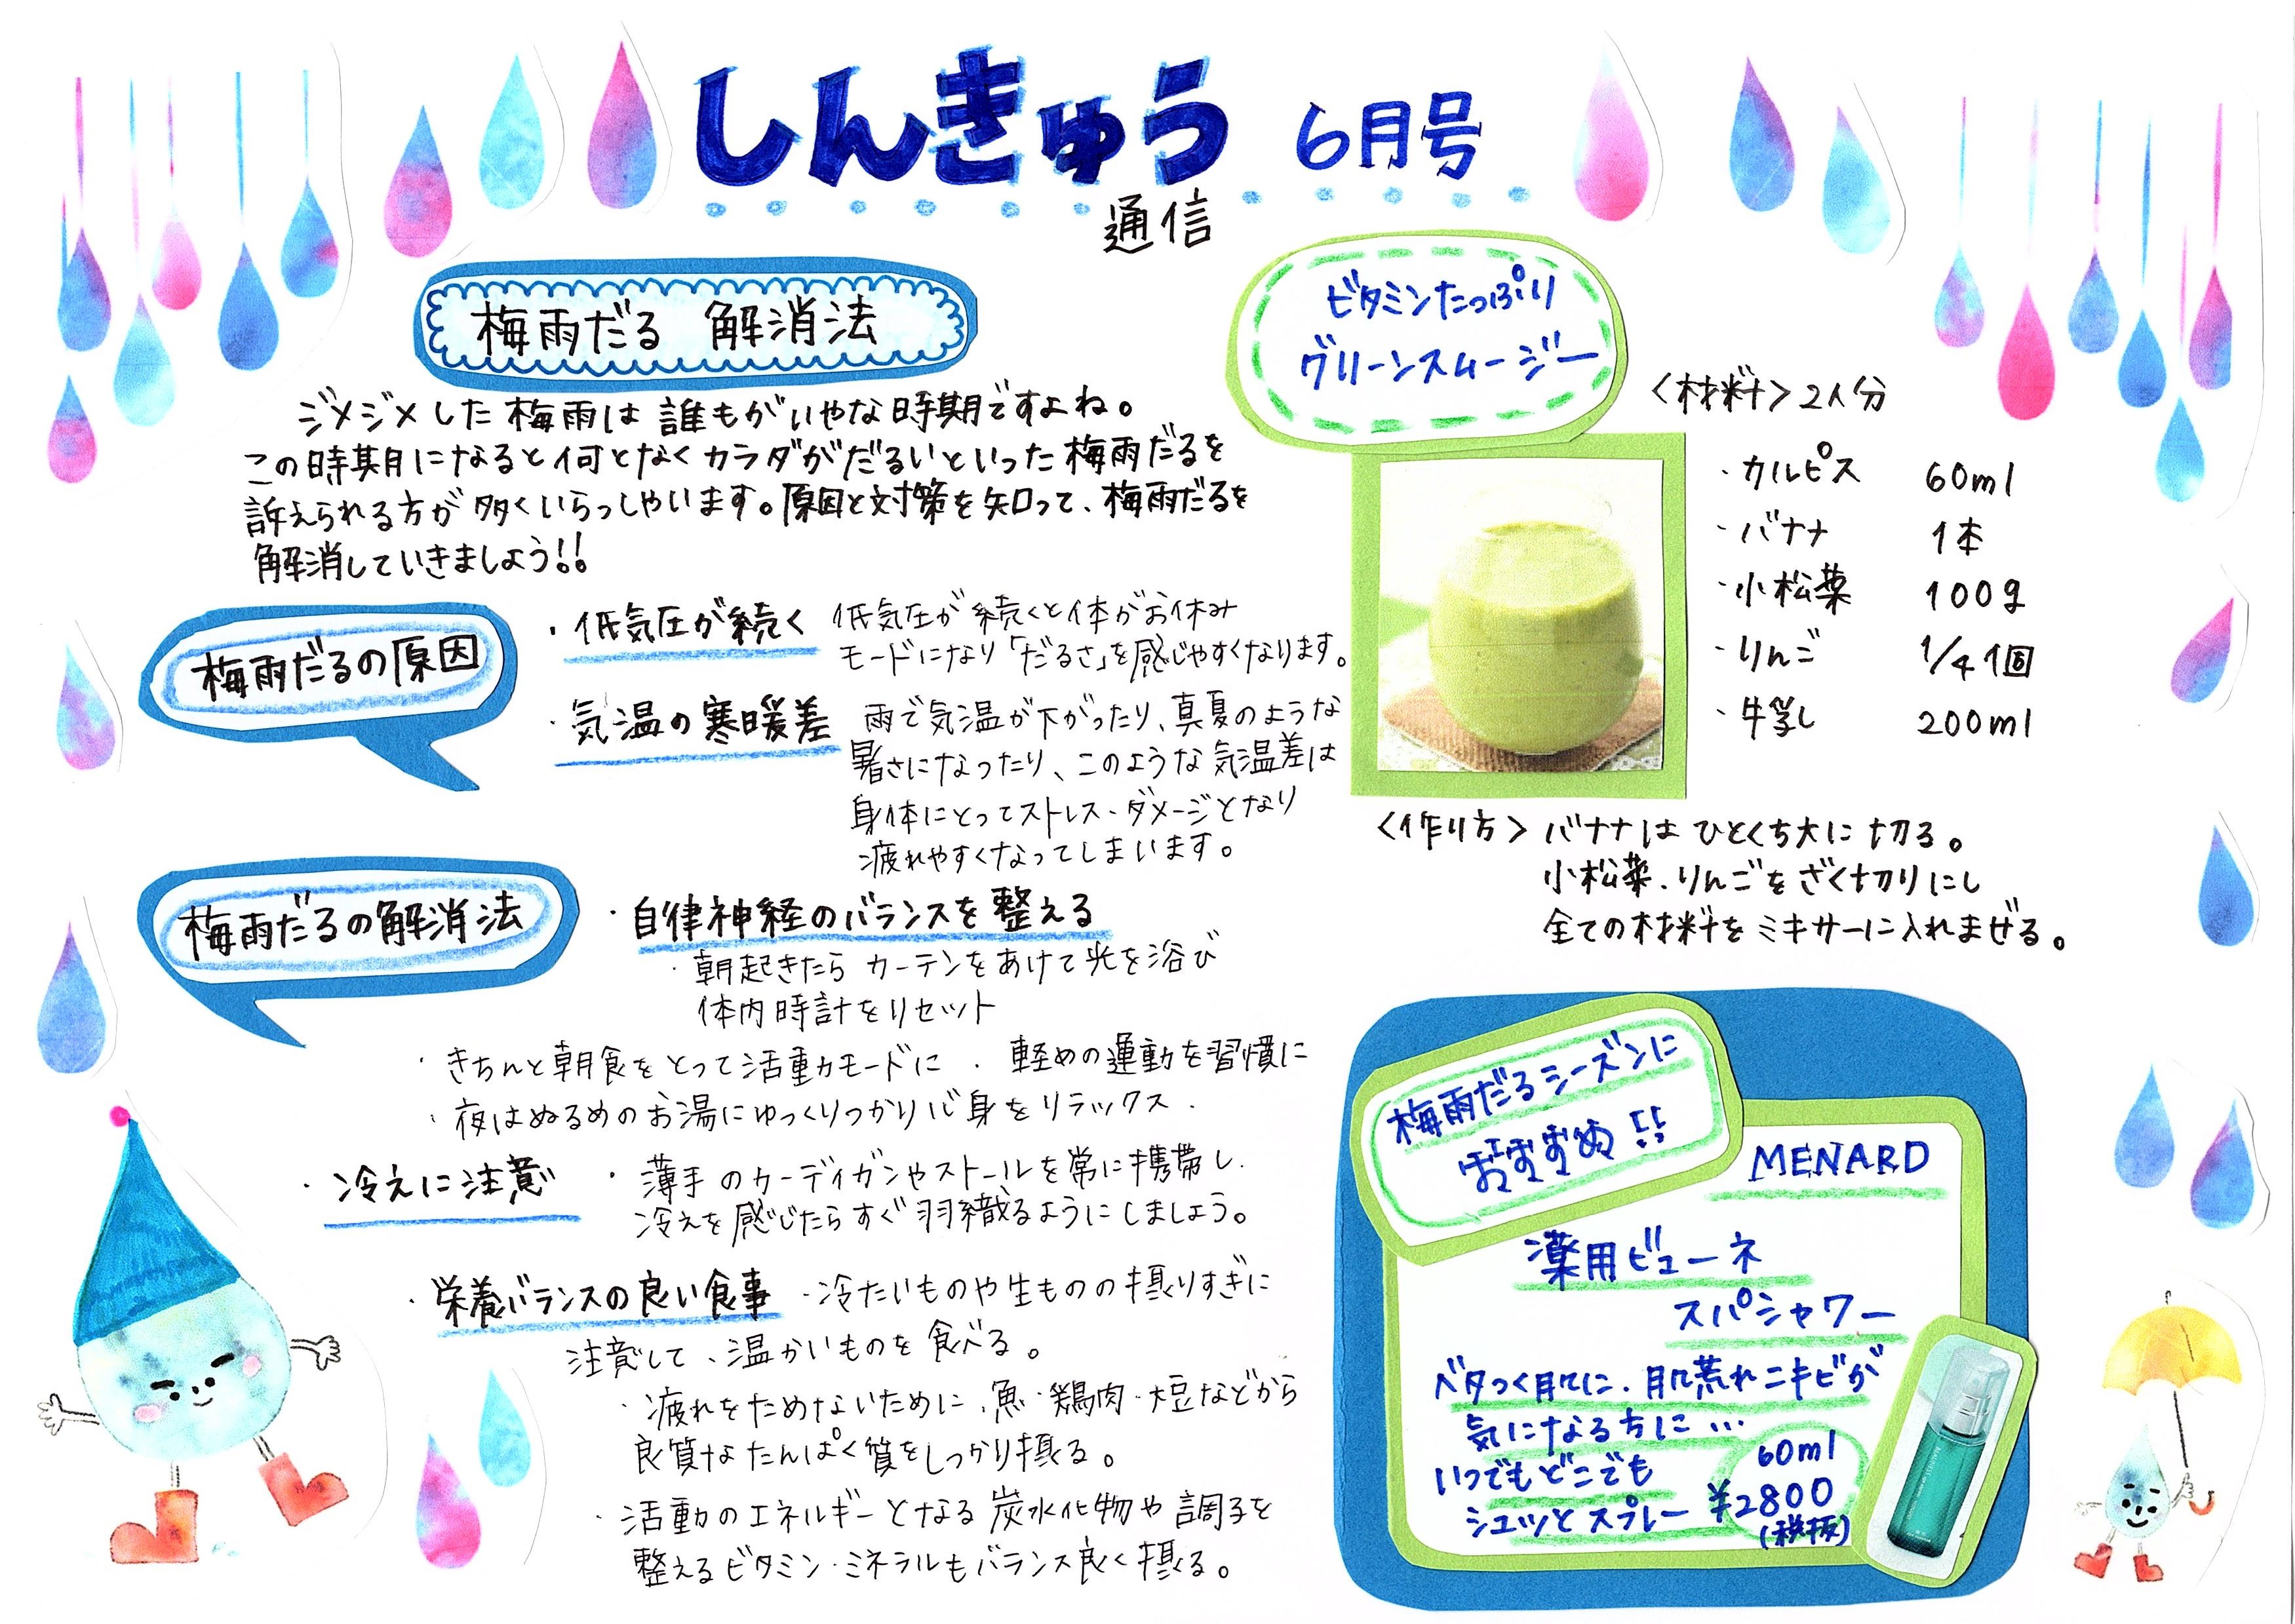 しんきゅう 6月号
通信
梅雨だる 解消法
ジメジメした梅雨は誰もがいやな時期ですよね。
この時期になると何となくカラダがだるいといった梅雨だるを
訴えられる方が多くいらっしゃいます。原因と対策を知って、梅雨だるを
解消していきましょう!!
梅雨だるの原因
・低気圧が続く 低気圧が続くと体がお休み
モードになり「だるさ」を感じやすくなります。
・気温の寒暖差 雨で気温が下がったり、真夏のような
暑さになったり、このような気温差は
身体にとってストレス・ダメージとなり
疲れやすくなってしまいます。
梅雨だるの解消法
・自律神経のバランスを整える
・朝起きたらカーテンをあけて光を浴び
体内時計をリセット
・きちんと朝食をとって活動モードに ・軽めの運動を習慣に
・夜はぬるめのお湯にゆっくりつかり心身をリラックス.
・冷えに注意 ・薄手のカーディガンやストールを常に携帯し.
冷えを感じたらすぐ羽織るようにしましょう。
・栄養バランスの良い食事 ・冷たいものや生ものの摂りすぎに
注意して、温かいものを食べる。
・疲れをためないために、魚・鶏肉・大豆などから
良質なたんぱく質をしっかり摂る。
・活動のエネルギーとなる炭水化物や調子を
整えるビタミン・ミネラルもバランス良く摂る。
ビタミンたっぷり
グリーンスムージー
<材料>2人分
・カルピス 60ml
・バナナ 1本
・小松菜 100g
・りんご 1/4個
・牛乳 200ml
<作り方> バナナはひとくち大に切る。
小松菜、りんごをざく切りにし
全ての材料をミキサーに入れまぜる。
梅雨だるシーズンに
おすすめ!!
MENARD
薬用ビューネ
スパシャワー
ベタつく肌に、肌荒れニキビが
気になる方に…
いつでもどこでも
シュッとスプレー
60ml
¥2800
(税抜)